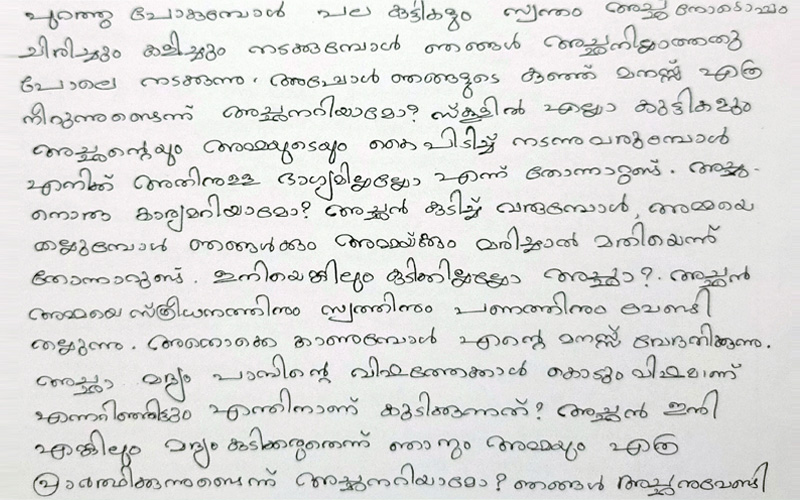 പുറത്തു പോകുമ്പോൾ പല കുട്ടികളും സ്വന്തം അച്ഛനോടൊപ്പം
ചിരിച്ചും കളിച്ചും നടക്കുമ്പോൾ ഞങ്ങൾ അച്ഛനില്ലാത്തതു
പോലെ നടക്കുന്നു. അപ്പോൾ ഞങ്ങളുടെ കുഞ്ഞ് മനസ്സ് എത്ര
നീറുന്നുണ്ടെന്ന് അച്ഛനറിയാമോ? സ്കൂളിൽ എല്ലാ കുട്ടികളും
അച്ഛന്റെയും അമ്മയുടെയും കൈ പിടിച്ച് നടന്നു വരുമ്പോൾ
എനിക്ക് അതിനുള്ള ഭാഗ്യമില്ലല്ലോ എന്ന് തോന്നാറുണ്ട്. അച്ഛ-
നൊരു കാര്യമറിയാമോ? അച്ഛൻ കുടിച്ച് വരുമ്പോൾ, അമ്മയെ
തല്ലുമ്പോൾ ഞങ്ങൾക്കും അമ്മയ്ക്കും മരിച്ചാൽ മതിയെന്ന്
തോന്നാറുണ്ട്. ഇനിയെങ്കിലും കുടിക്കില്ലല്ലോ അച്ഛാ? അച്ഛൻ
അമ്മയെ സ്ത്രീധനത്തിനും സ്വത്തിനും പണത്തിനും വേണ്ടി
തല്ലുന്നു. അതൊക്കെ കാണുമ്പോൾ എന്റെ മനസ്സ് വേദനിക്കുന്നു.
അച്ഛാ മദ്യം പാമ്പിന്റെ വിഷത്തേക്കാൾ കൊടും വിഷമാണ്
എന്നറിഞ്ഞിട്ടും എന്തിനാണ് കുടിക്കുന്നത്? അച്ഛൻ ഇനി
എങ്കിലും മദ്യം കുടിക്കരുതെന്ന് ഞാനും അമ്മയും എത്ര
പ്രാർത്ഥിക്കുന്നുണ്ടെന്ന് അച്ഛനറിയാമോ? ഞങ്ങൾ അച്ഛനുവേണ്ടി